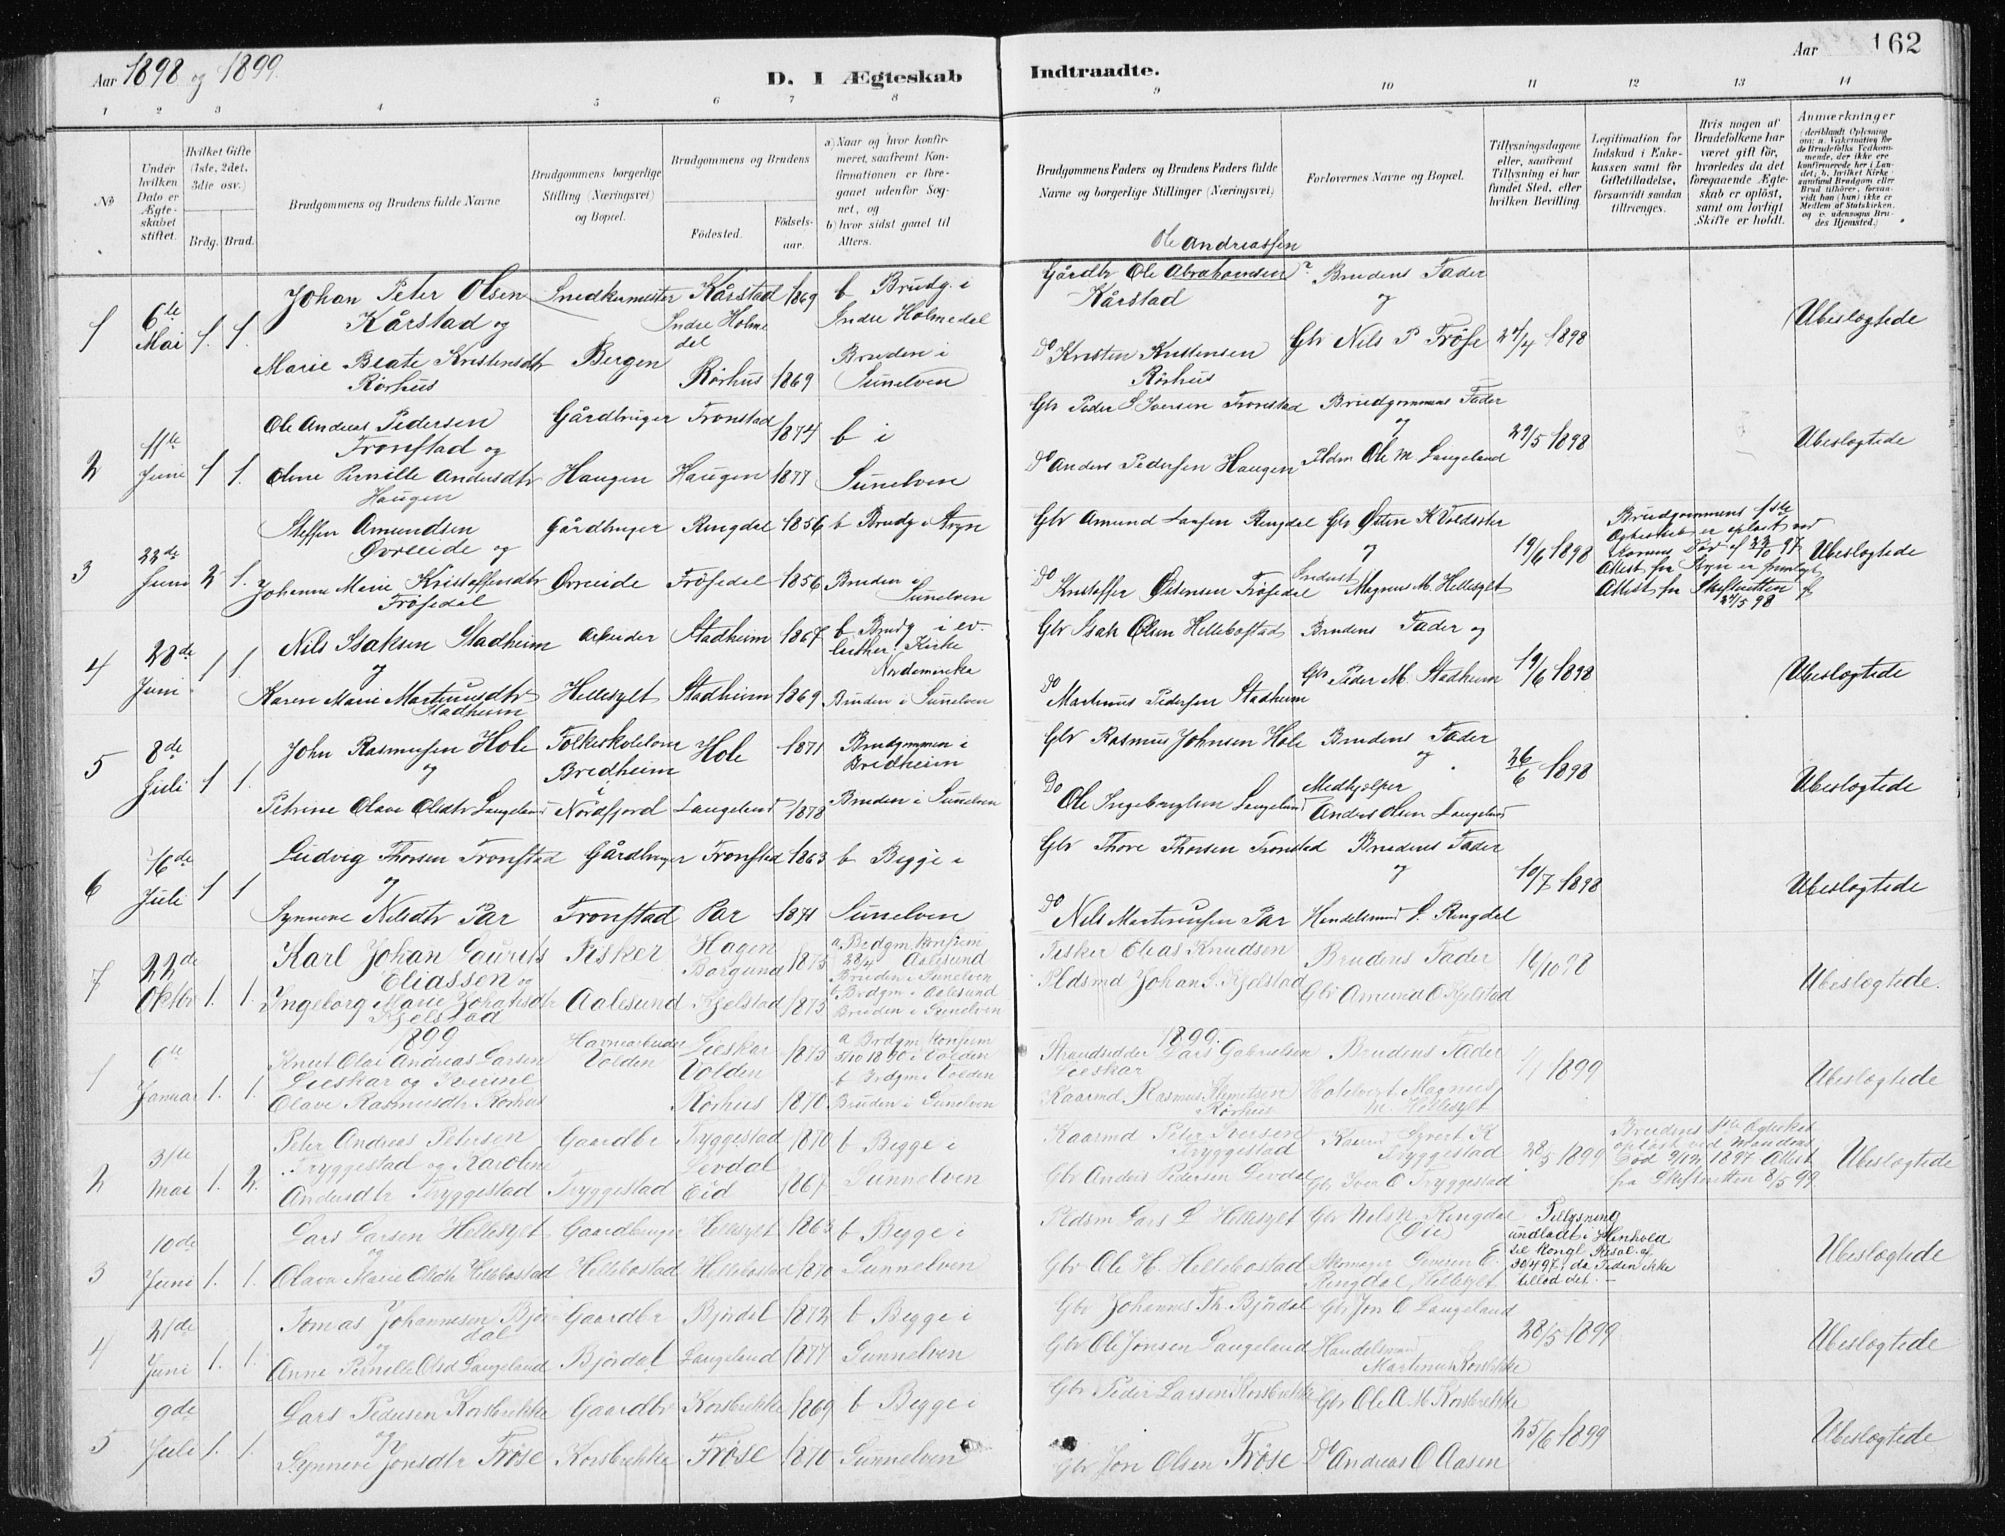 Aar 1898 og 1899.
D. I Ægteskab Indtraadte.
Aar 162
1 2 3 4 5 6 7 8 9 10 11 12 13 14
No
Under hvilken Dato er Ægteskabet stiftet.
Hvilket Gifte (1ste, 2det, 3die osv.)
Brdg. Brud.
Brudgommens og Brudens fulde Navne
Brudgommens borgerlige Stilling (Næringsvei) og Bopæl.
Brudgommens og Brudens
Fødested. Fødselsaar.
a) Naar og hvor konfirmeret, saafremt Konfirmationen er foregaaet udenfor Sognet, og
b) hvor sidst gaaet til Alters.
Brudgommens Faders og Brudens Faders fulde Navne og borgerlige Stillinger (Næringsvei)
Forlovernes Navne og Bopæl.
Tillysningsdagene eller, saafremt Tillysning ei har fundet Sted, efter hvilken Bevilling.
Legitimation for Indskud i Enkekassen samt for Giftetilladelse, forsaavidt saadan tiltrænges.
Hvis nogen af Brudefolkene har været gift før, hvorledes da det foregaaende Ægteskab er opløst, samt om lovligt Skifte er holdt.
Anmærkninger
1 6te Mai 1. 1. Johan Peter Olsen Kårstad og Snedkermester Bergen Kårstad Indre Holmedal 1869 b Brudg. i Indre Holmedal
Gårdbr Ole Abrahamsen Kårstad
Ole Andreassen
Brudens Fader og
Marie Beate Kristensdtr Rørhus Rørhus 1869 Bruden i Sunelven
Do Kristen Kristensen Rørhus Gbr Nils P Frøse 24/4 1898 Ubeslægtede
2 11te Juni 1 1. Ole Andreas Pedersen Tronstad og Gårdbruger Tronstad 1874 b i
Gbr Peder S Iversen Tronstad Brudgommens Fader og 29/5 1898 Ubeslægtede
Oline Pernille Andersdtr Haugen Haugen Haugen 1877 Sunelven
Do Anders Pedersen Haugen Pldm Ole M. Langeland
3 22de Juni 2 1. Steffen Amundsen Øvreeide og Gårdbruger Ringdal 1856 b Brudg i Stryn
Gbr Amund Larsen Ringdal Gbr Østen K Voldseter og 19/6 1898
Brudgommens 1ste Ægteskab er opløst ved Konens Død Attest fra Stryn er fremlagt Attest fra Skifteretten 24/5 98
Ubeslægtede
Johanne Marie Kristoffersdtr Frøsedal Øvreeide Frøsedal 1856 Bruden i Sunelven
Do Kristoffer Østensen Frøsedal Magnus M. Hellesylt
4 28de Juni 1 1. Nils Isaksen Stadheim og Arbeider Stadheim 1867 b Brudg i ev. luther. Kirke Nordamerika
Gbr Isak Olsen Hellebostad Brudens Fader og 19/6 1898 Ubeslægtede
Karen Marie Martinusdtr Stadheim Hellesylt Stadheim 1869 Bruden i Sunelven
Do Martinus Pedersen Stadheim Gbr Peder M. Stadheim
5 8de Juli 1 1. John Rasmussen Hole og Folkeskolelærer Bredheim i Hole 1871 Brudgommen i Bredheim
Gbr Rasmus Johnsen Hole Brudens Fader og 26/6 1898 Ubeslægtede
Petrine Olave Olsdtr Langeland Nordfjord Langeland 1878 Bruden i Sunelven
Do Ole Ingebrigtsen Langeland Medhjælper Anders Olsen Langeland
6 16de Juli 1 1 Ludvig Thorsen Tronstad og Gårdbruger Tronstad 1863 b Begge i
Gbr Thore Thorsen Tronstad Brudens Fader og 10/7 1898 Ubeslægtede
Synneve Nilsdtr Par Tronstad Par 1871 Sunelven
Do Nils Martinussen Par Handelsmand Ringdal
7 22de Oktbr 1. 1. Karl Johan Laurits Eliassen og Fisker Hagen Borgund 1875 a Brdgm konfirm Aalesund Bruden i Sunelven
Fisker Elias Knudsen Brudens Fader 16/10 98 Ubeslægtede.
Ingeborg Marie Johansdtr Kjelstad Aalesund Kjelstad 1873 b Brdgm i Aalesund Bruden i Sunelven
Pldsmd Johan Kjelstad Gbr Amund O Kjelstad
1899 1899.
1 6te Januar 1. 1. Knut Olai Andreas Larsen Leeskar og Iverine Havnearbeider Volden Leeskar Volden 1875 a Brdgm konfirm 5/10 1890 i Volden b Brdgm i Volden
Strandsidder Lars Gabrielsen Leeskar Brudens Fader 1/1 1899 Ubeslægtede
Olave Rasmusdtr Rørhus Rørhus 1870 Bruden i Sunelven
Kaarmd Rasmus Rørhus Magnus M. Hellesylt
2 31te Mai 1. 2. Peter Andreas Petersen Tryggestad og Karoline Gaardbr Tryggestad 1870 b Begge i
Kaarmd Peter Iversen Tryggestad Syvert K Tryggestad 28/5 1899
Brudens 1ste Ægteskab opløst ved Mandens Død 9/12 1897 Attest fra Skifteretten 8/5 99
Ubeslægtede
Andersdtr Tryggestad Tryggestad Levdal Eid 1867 Sunnelven
Gbr Anders Pedersen Levdal Gbr Iver O Tryggestad
3 10de Juni 1. 1. Lars Larsen Hellesylt og Gaardbruger Hellesylt 1863 b Begge i
Pldsm Lars L Hellesylt Gbr Nils N. Ringdal
Tillysning undladt i Henhold til kongl. Resol. af 30/4 97, da Tiden ikke tillod det.
Ubeslægtede
Olava Marie Olsdtr Hellebostad Hellebostad Hellebostad 1870 Sunnelven
Gbr Ole H. Hellebostad Skomager E. Ringdal Hellesylt
4 21de Juni 1. 1. Tomas Johannesen Bjørdal og Gaardbr Bjørdal 1872 b Begge i
Gbr Johannes Th. Bjørdal Gbr Jon O Langeland 28/5 1899 Ubeslægtede
Anne Pernille Olsd Langeland Bjørdal Langeland 1877 Sunnelven
Gbr Ole Jonsen Langeland Handelsmand Martinus Korsbrekke
5 9de Juli 1. 1. Lars Pedersen Korsbrekke og Gaardbr Korsbrekke 1869 b Begge i
Gbr Peder Larsen Korsbrekke Gbr Ole A. M Korsbrekke 25/6 1899 Ubeslægtede
Synneve Jonsdtr Frøse Korsbrekke Frøse 1870 Sunnelven
Gbr Jon Olsen Frøse Do Andreas O Aasen